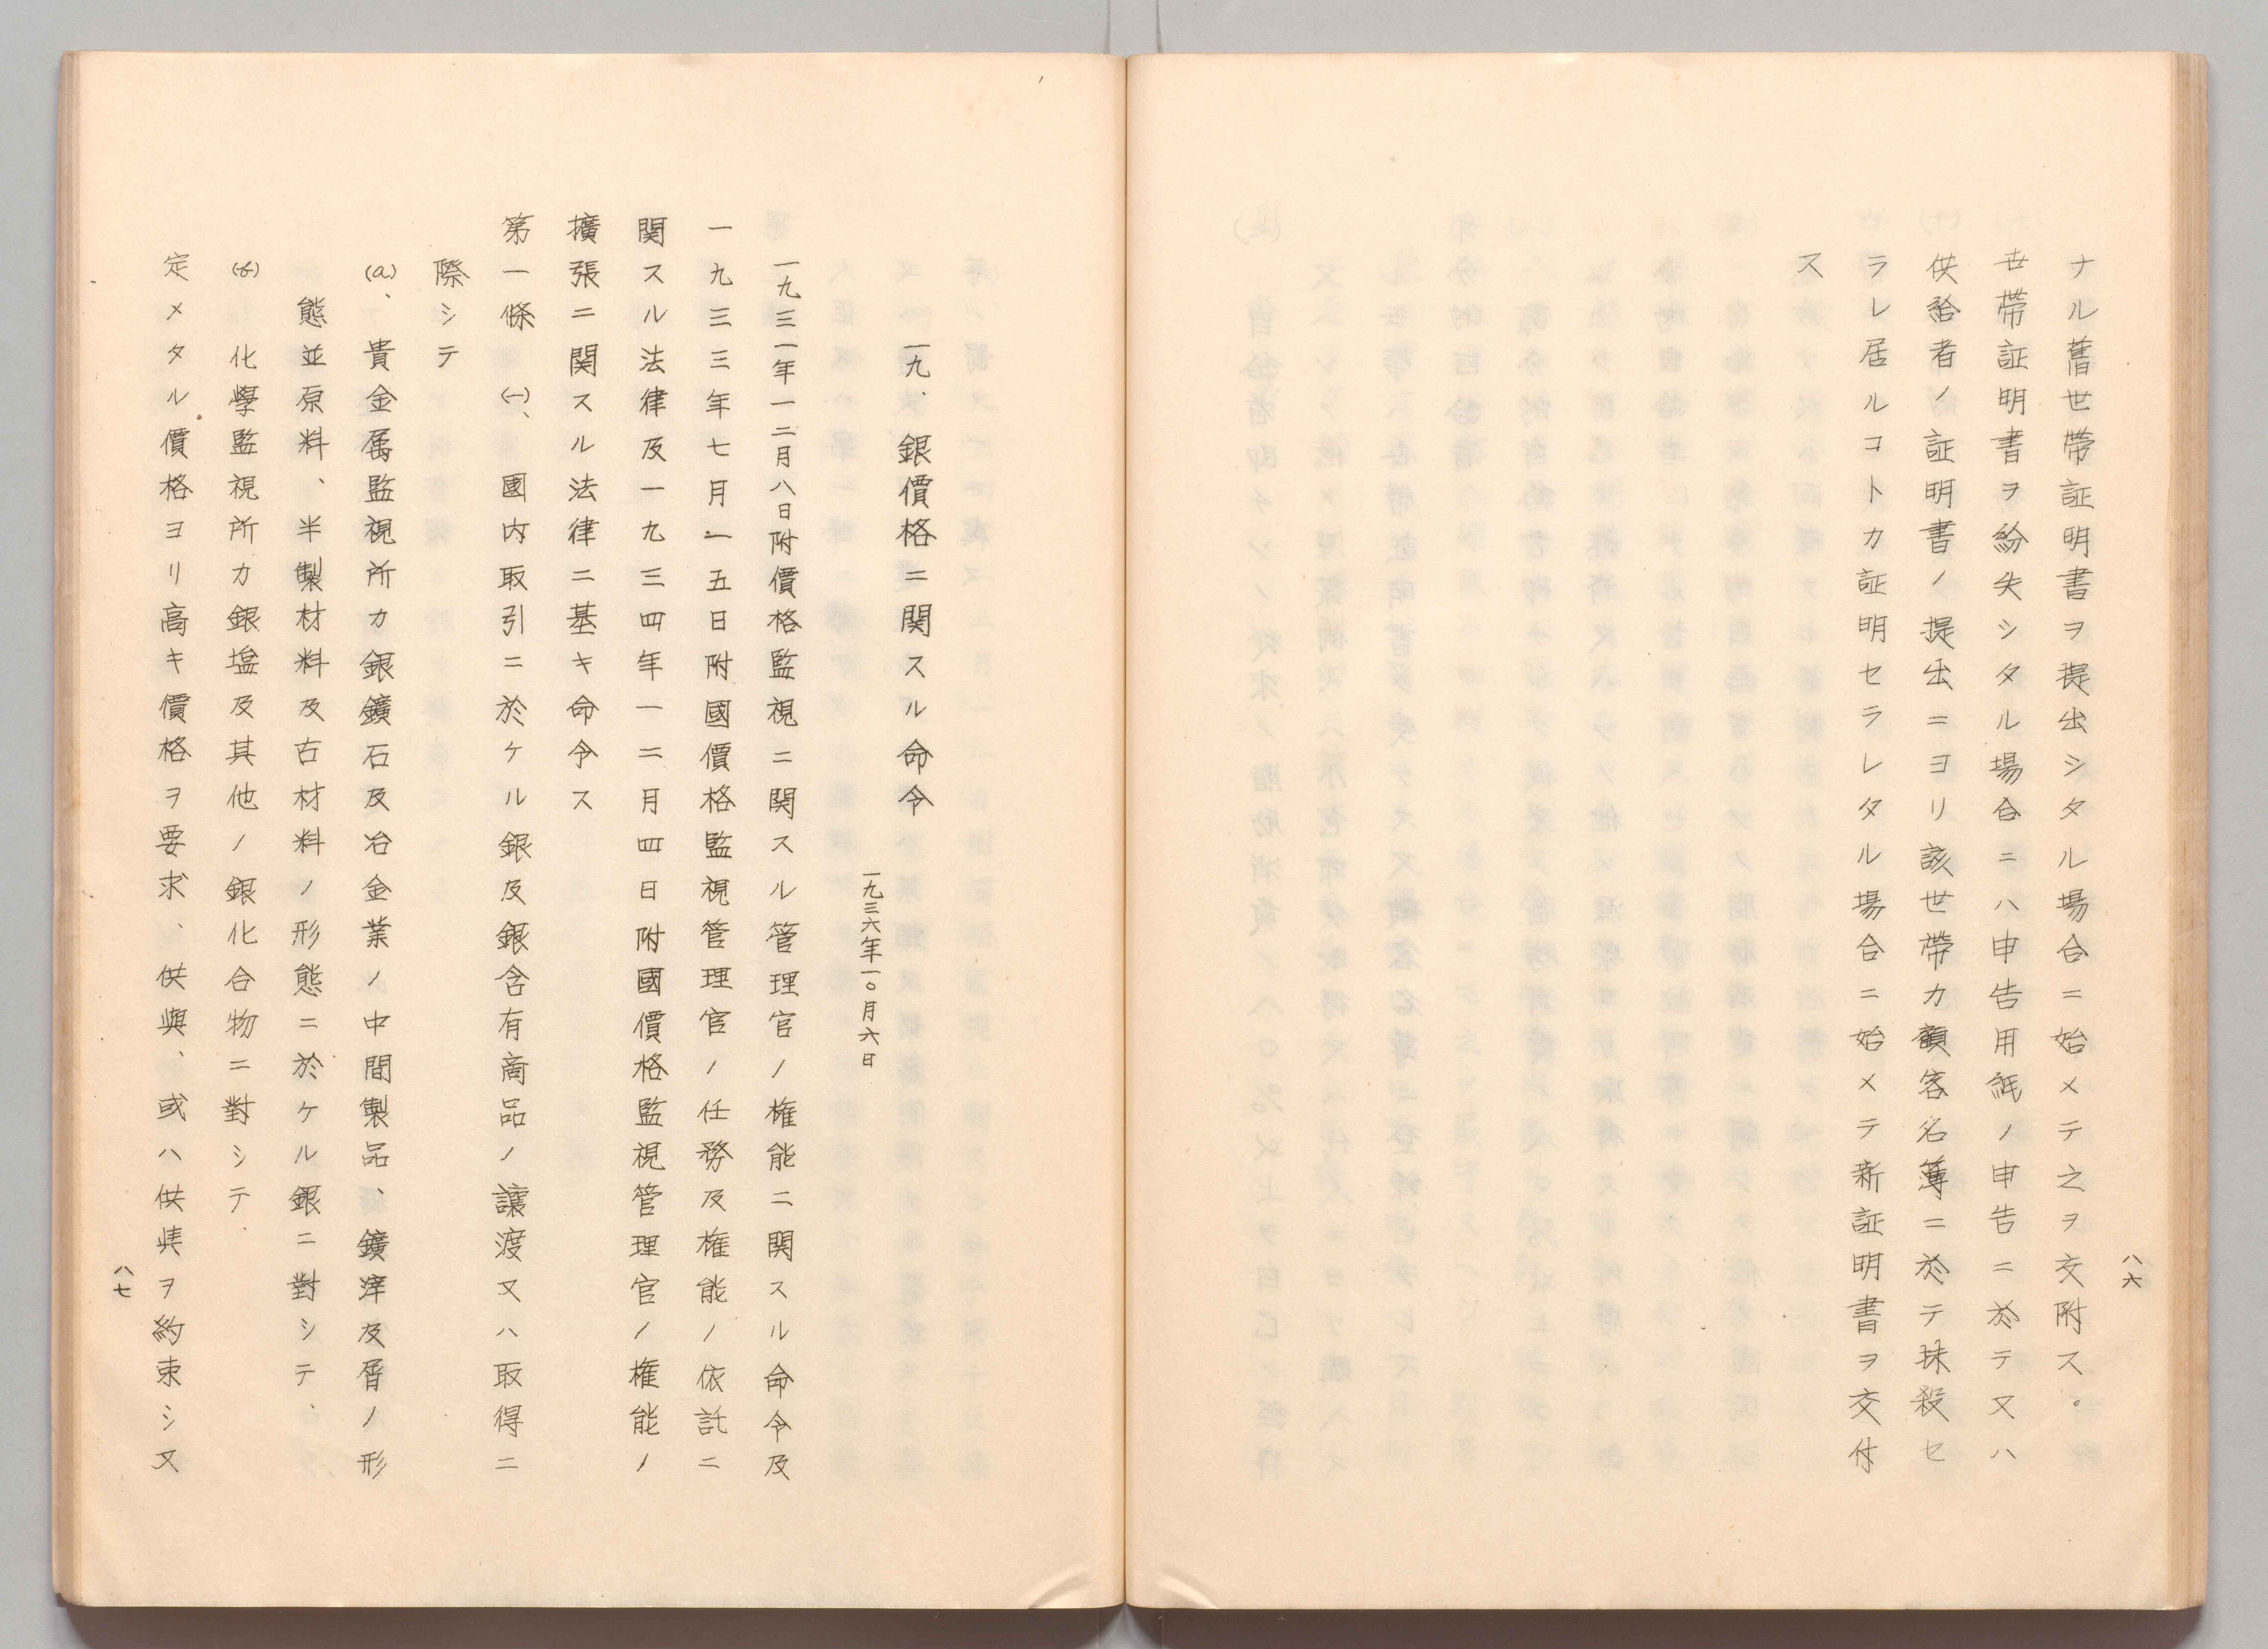 ナル舊世帶証明書ヲ提出シタル場合ニ始メテ之ヲ交附ス。
世帶証明書ヲ紛失シタル場合ニハ申告用紙ノ申告ニ於テ又ハ
供給者ノ証明書ノ提出ニヨリ該世帶カ顧客名簿ニ於テ抹殺セ
ラレ居ルコトカ証明セラレタル場合ニ始メテ新証明書ヲ交付
ス
八六
一九、銀價格ニ関スル命令
一九三六年一〇月六日
一九三一年一二月八日附價格監視ニ関スル管理官ノ権能ニ関スル命令及
一九三三年七月一五日附國價格監視管理官ノ任務及権能ノ依託ニ
関スル法律及一九三四年一二月四日附國價格監視管理官ノ権能ノ
擴張ニ関スル法律ニ基キ命令ス
第一條 (一)、國内取引ニ於ケル銀及銀含有商品ノ讓渡又ハ取得ニ
際シテ
(a)、貴金属監視所カ銀鑛石及冶金業ノ中間製品、鑛滓及屑ノ形
態並原料、半製材料及古材料ノ形態ニ於ケル銀ニ對シテ、
(b) 化學監視所カ銀塩及其他ノ銀化合物ニ對シテ、
定メタル價格ヨリ高キ價格ヲ要求、供與、或ハ供與ヲ約束シ又
八七